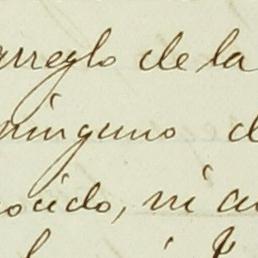 arreglo de la
ninguno d
nocido, ni a